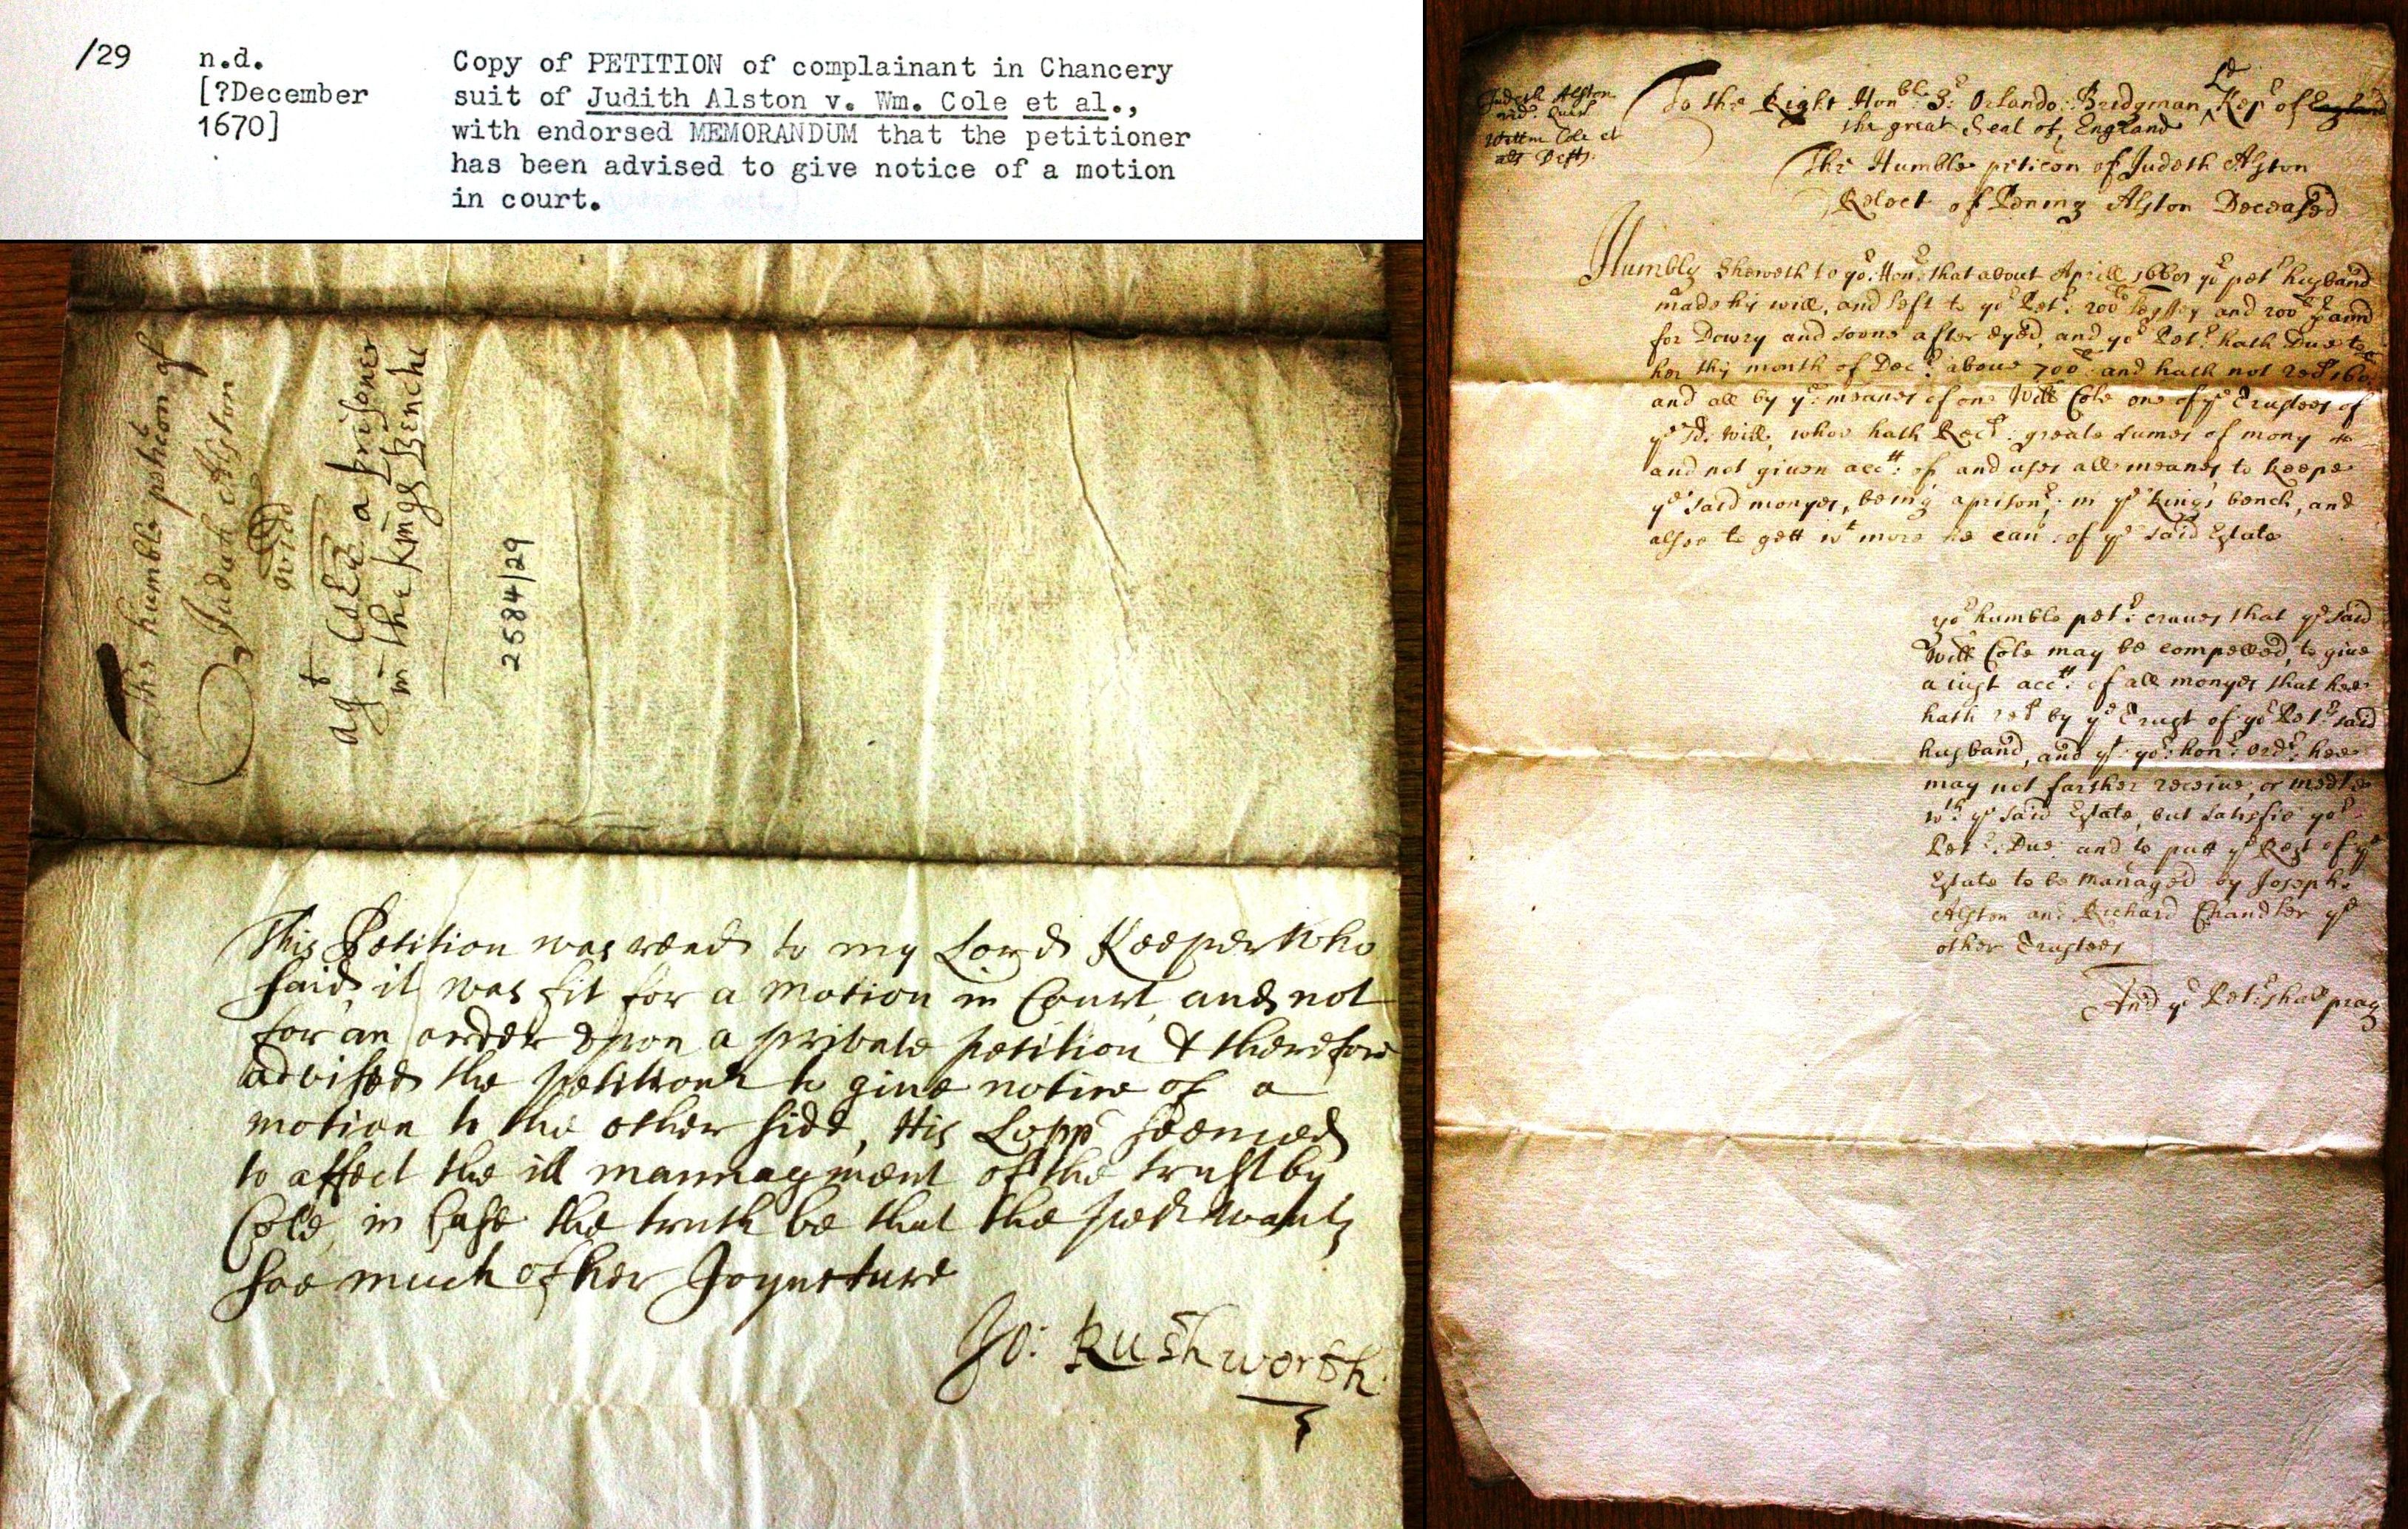 /29
n.d.
[?December
1670]
Copy of PETITION of complainant in Chancery
suit of Judith Alston v. Wm. Cole et al.,
with endorsed MEMORANDUM that the petitioner
has been advised to give notice of a motion
in court.
The humble peticon of
Judath Alston
Widd
agt Cole a prisoner
in the kings Benche
2584/29
This Petition was read to my Lord Keeper who
said it was fit for a motion in Court and not
for an order upon a private petition & therefore
advised the petitionr to give notice of a
motion to the other side, His Lopp seemed
to affect the ill mannagment of the trust by
Cole in case the truth be that the petr wants
soe much of her Joyneture
Jo: Rushworth
Judeth Alston
Willm Cole et
als Defts.
To the Right Honble Sr Orlando Bridgman Ld Kepr of England
the great Seal of England
The Humble peticon of Judeth Alston
Relect of Pening Alston Deceased
Humbly Sheweth to yor Honr that about Aprill yor petr husband
made his will, and left to yor Petr: 200 and 200 p ann
for Dowry and soone after dyed, and yor Petr: hath Due to
her this month of Decr above 700 and hath not red 160
and all by ye meanes of one Will Cole one of ye Trustees of
ye sd. Will, whoe hath Recd: greate sumes of mony
and not given acctt: of and uses all meanes to keepe
ye said monyes, being a prisonr: in ye kings bench, and
alsoe to gett wt more he can of ye said Estate
yor humble petr: craves that ye said
Will Cole may be compelled, to give
a iust acctt: of all monyes that hee
hath red by ye Trust of yor Petrs said
husband, and yt yor: honr: ordr: hee
may not farther receive, or medle
wth ye said Estate, but satisfie yor
Petr: Due and to putt ye Rest of ye
Estate to be managed by Joseph
Alston and Richard Chandler ye
other Trustees
And yr Petr: shall pray